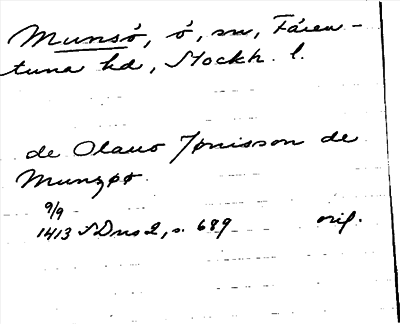 Munsö, ö, sn, Fären-
tuna hd, Stockh. l.
de Olauo Jønisson de
Munzøø.
9/9
1413 SDns 2, s. 689 orig.